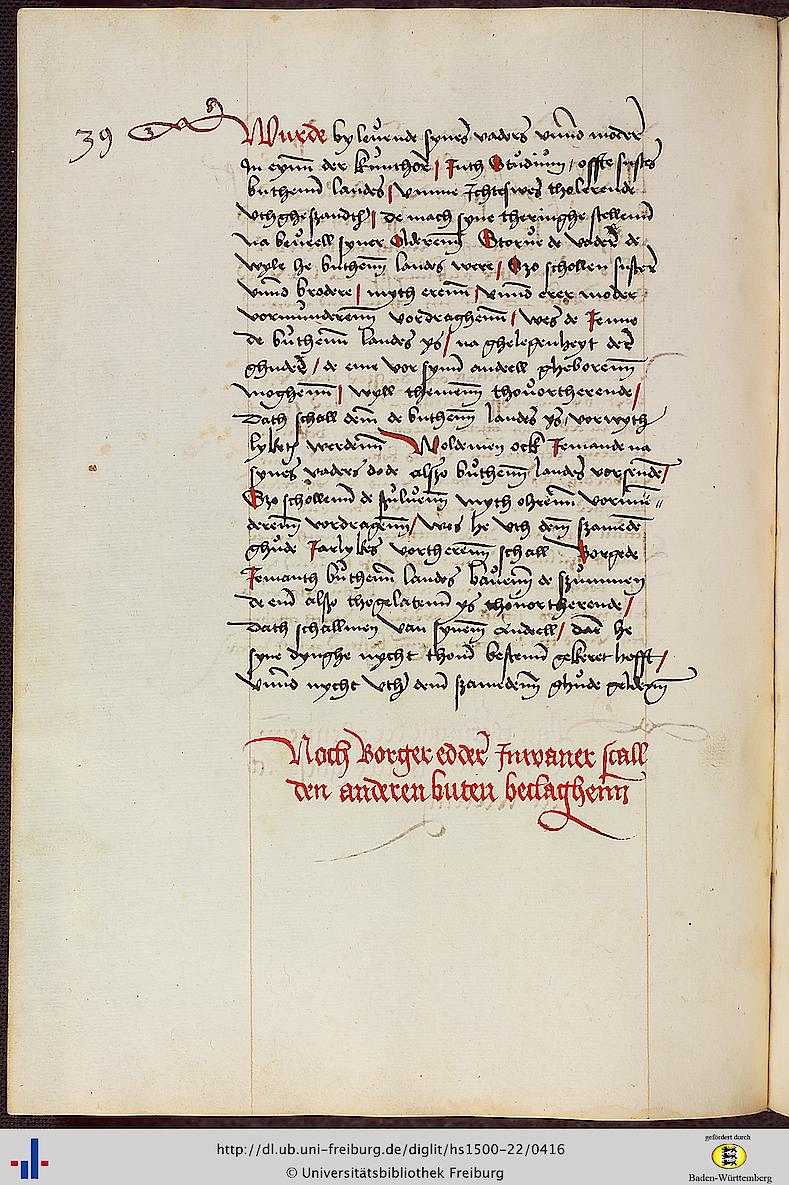 39
Wurde by leuende synes vaders vnnd moder
In eynn der Kunthor / Inth Studium / offte sustes
buthenn landes / vmme Ichteswes tholerende
vthgheszandth / de mach syne theringhe stellenn
na beuell syner Olderenn Storue de vader de
wyle he buthenn landes were / Szo schollen suster
vnnd brodere / myth erenn / vnnd erer moder
vormunderenn vordraghenn / wes de Jenne
de buthenn landes ys / na ghelegenheyt der
ghuder / de eme vor synn andeell gheborenn
moghenn / wyll themenn thouortherende /
Dath schall dem de buthenn landes ys / vorwyth
lyket werdenn Woldemen ock Jemande na
synes vaders dode alszo buthenn landes vorsende /
Szo schollenn de suluenn myth ohrenn vormu=
derenn vordragenn / wes he vth dem szamede
ghude Jarlykes vortherenn schall Borgede
Jemanth buthenn landes bauenn de szummen
de em alszo thogelatenn ys thouortherende /
Dath schallmen van synem Andeell / dar he
syne dynghe nycht thom bestenn gekeret hefft /
vnnd nycht vth dem szamedenn ghude geldenn
Noch Borger edder Inwaner scall
den anderen buten beclaghenn
http://dl.ub.uni-freiburg.de/diglit/hs1500-22/0416
© Universitätsbibliothek Freiburg
gefördert durch
Baden-Württemberg